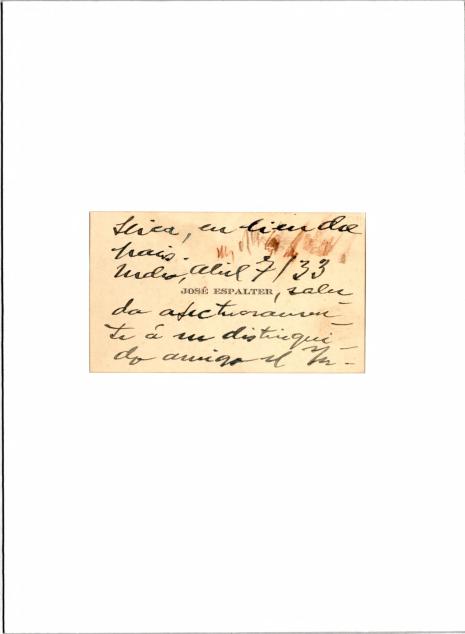 en bien del
pais.
Mdeo, Abril 7/33
JOSÉ ESPALTER, salu
da afectuosamen-
te á su distingui-
do amigo el